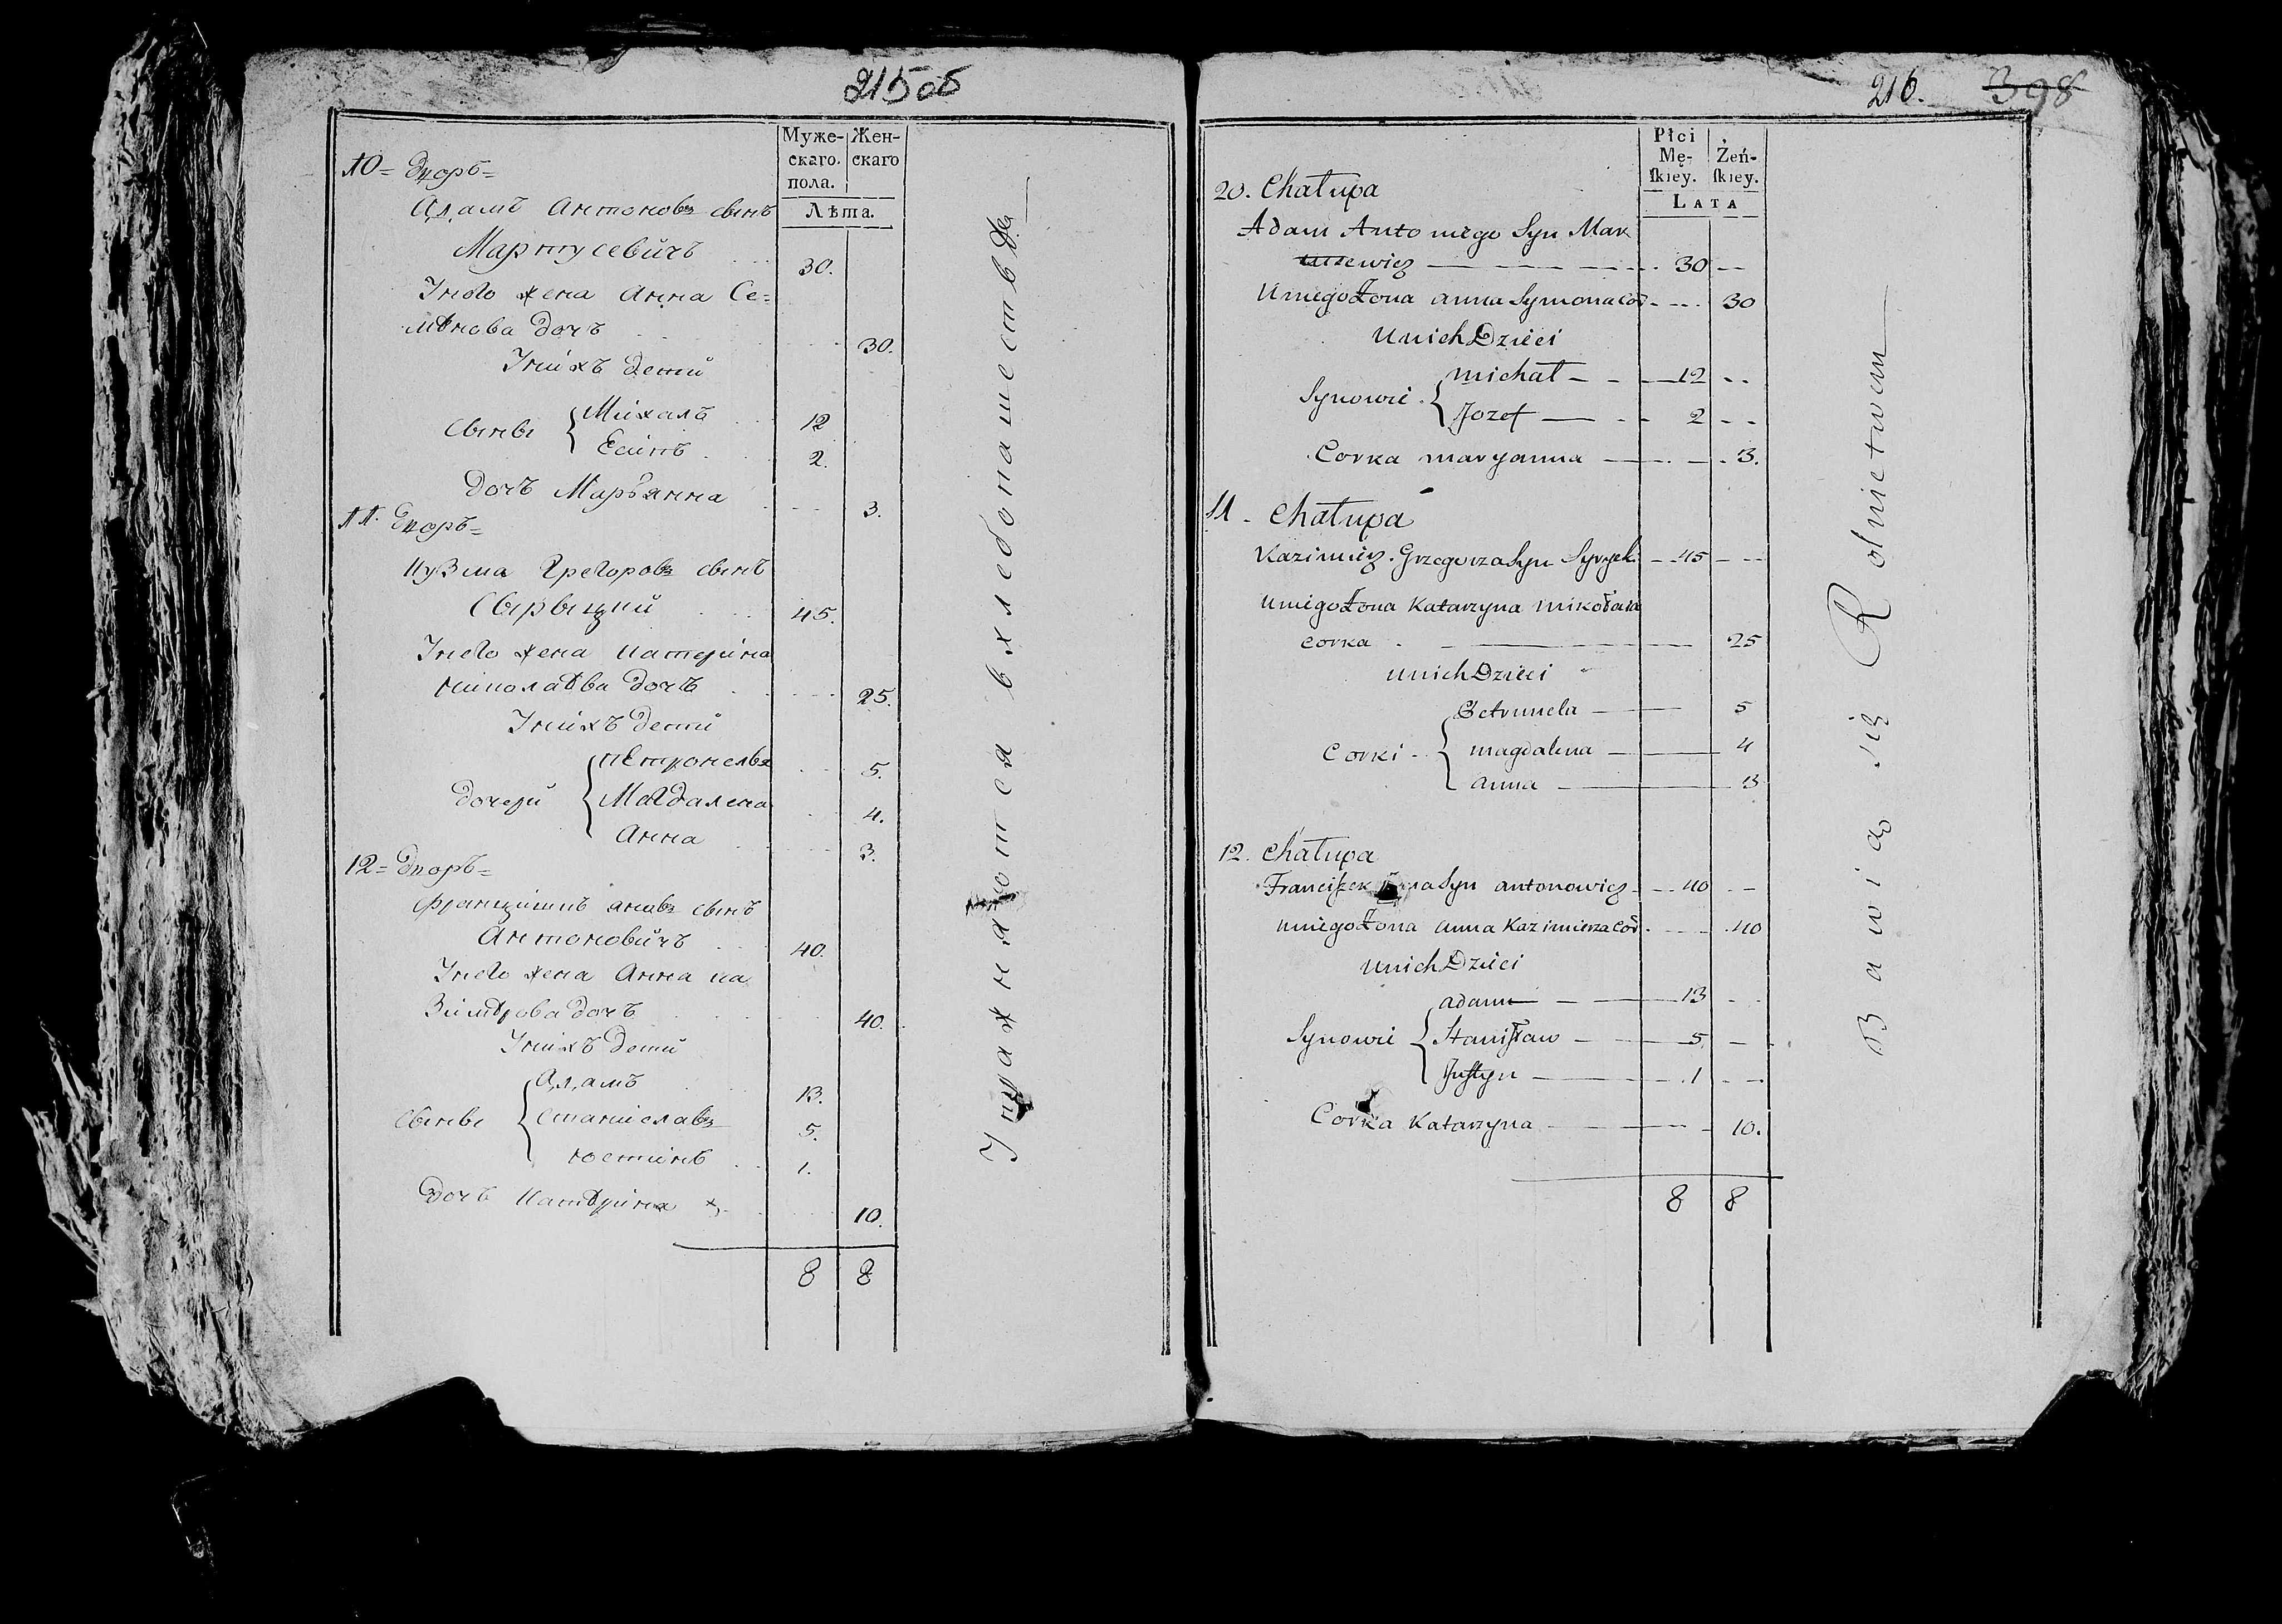 215об
Муже- Жен-
скаго. скаго
пола.
Лѣта.
10= Дворъ=
Адамъ Антоновъ сынъ
Мартусевичъ 30.
Унего жена Анна Се=
мѣнова дочь 30.
Унихъ дети
Сыны Михалъ 12
Есипъ 2.
Дочь Марьянна 3.
11. Дворъ=
Кузма Грегоровъ сынъ
Сырыцкий 45.
Унего жена Катерина
Николаѣва дочь 25.
Унихъ дети
Дочери Петронеля 5.
Магдалена 4.
Анна 3.
12= Дворъ=
Францишкъ Янавъ сынъ
Антоновичъ 40.
Унего жена Анна Ка
зимѣрова дочь 40.
Унихъ дети
Сыны Адамъ 13.
Станиславъ 5.
Юстинъ 1.
Дочь Катѣрина 10.
8 8
Упражняются вхлебопашестве
216. 398
Płci
Mę- Żeń-
ſkiey. ſkiey.
LATA
20. Chałupa
Adam Antoniego Syn Mar
tusewicz 30
Uniego Żona Anna Symona Cor 30
Unich Dzieci
Synowie Michał 12
Jozef 2
Corka Maryanna 3.
11. Chałupa
Kazimierz Grzegorza Syn Syrycki 45
Uniego Żona Katarzyna Mikołaia
Corka 25
Unich Dzieci
Corki Petrunela 5
Magdalena 4
Anna 3
12. Chałupa
Franciſzek Syn Antonowicz 40
Uniego Żona Anna Kazimierza Cor 40
Unich Dzieci
Synowie Adam 13
Staniſław 5
Juſtyn 1
Corka Katarzyna 10.
8 8
Bawią się Rolnictwem